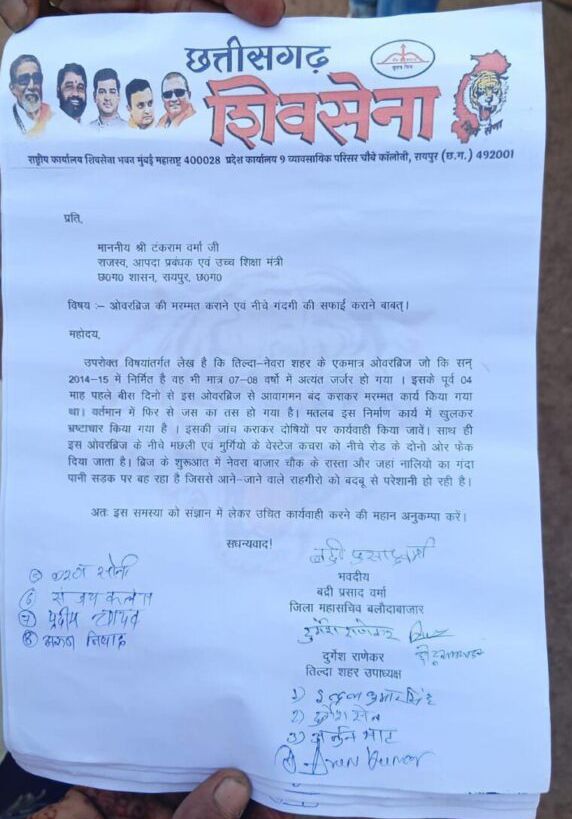 छत्तीसगढ़
शिवसेना
राष्ट्रीय कार्यालय शिवसेना भवन मुंबई महाराष्ट्र 400028 प्रदेश कार्यालय 9 व्यावसायिक परिसर चौबे कॉलोनी, रायपुर (छ.ग.) 492001
प्रति,
माननीय श्री टंकराम वर्मा जी
राजस्व, आपदा प्रबंधक एवं उच्च शिक्षा मंत्री
छ0ग0 शासन, रायपुर, छ0ग0
विषय :– ओवरब्रिज की मरम्मत कराने एवं नीचे गंदगी की सफाई कराने बाबत्।
महोदय,
उपरोक्त विषयांतर्गत लेख है कि तिल्दा-नेवरा शहर के एकमात्र ओवरब्रिज जो कि सन्
2014-15 में निर्मित है वह भी मात्र 07-08 वर्षो में अत्यंत जर्जर हो गया । इसके पूर्व 04
माह पहले बीस दिनो से इस ओवरब्रिज से आवागमन बंद कराकर मरम्मत कार्य किया गया
था। वर्तमान में फिर से जस का तस हो गया है। मतलब इस निर्माण कार्य में खुलकर
भ्रष्टाचार किया गया है । इसकी जांच कराकर दोषियों पर कार्यवाही किया जावें। साथ ही
इस ओवरब्रिज के नीचे मछली एवं मुर्गियो के वेस्टेज कचरा को नीचे रोड के दोनो ओर फेक
दिया जाता है। ब्रिज के शुरूआत में नेवरा बाजार चौक के रास्ता और जहां नालियो का गंदा
पानी सडक पर बह रहा है जिससे आने-जाने वाले राहगीरो को बदबू से परेशानी हो रही है।
अतः इस समस्या को संज्ञान में लेकर उचित कार्यवाही करने की महान अनुकम्पा करें।
सधन्यवाद!
भवदीय
बद्री प्रसाद वर्मा
जिला महासचिव बलौदाबाजार
दुर्गेश राणेकर
तिल्दा शहर उपाध्यक्ष
सोनी
संजय
प्रदीप
निषाद
1)
2) दुर्गेश सेन
3) अर्जुन भाट